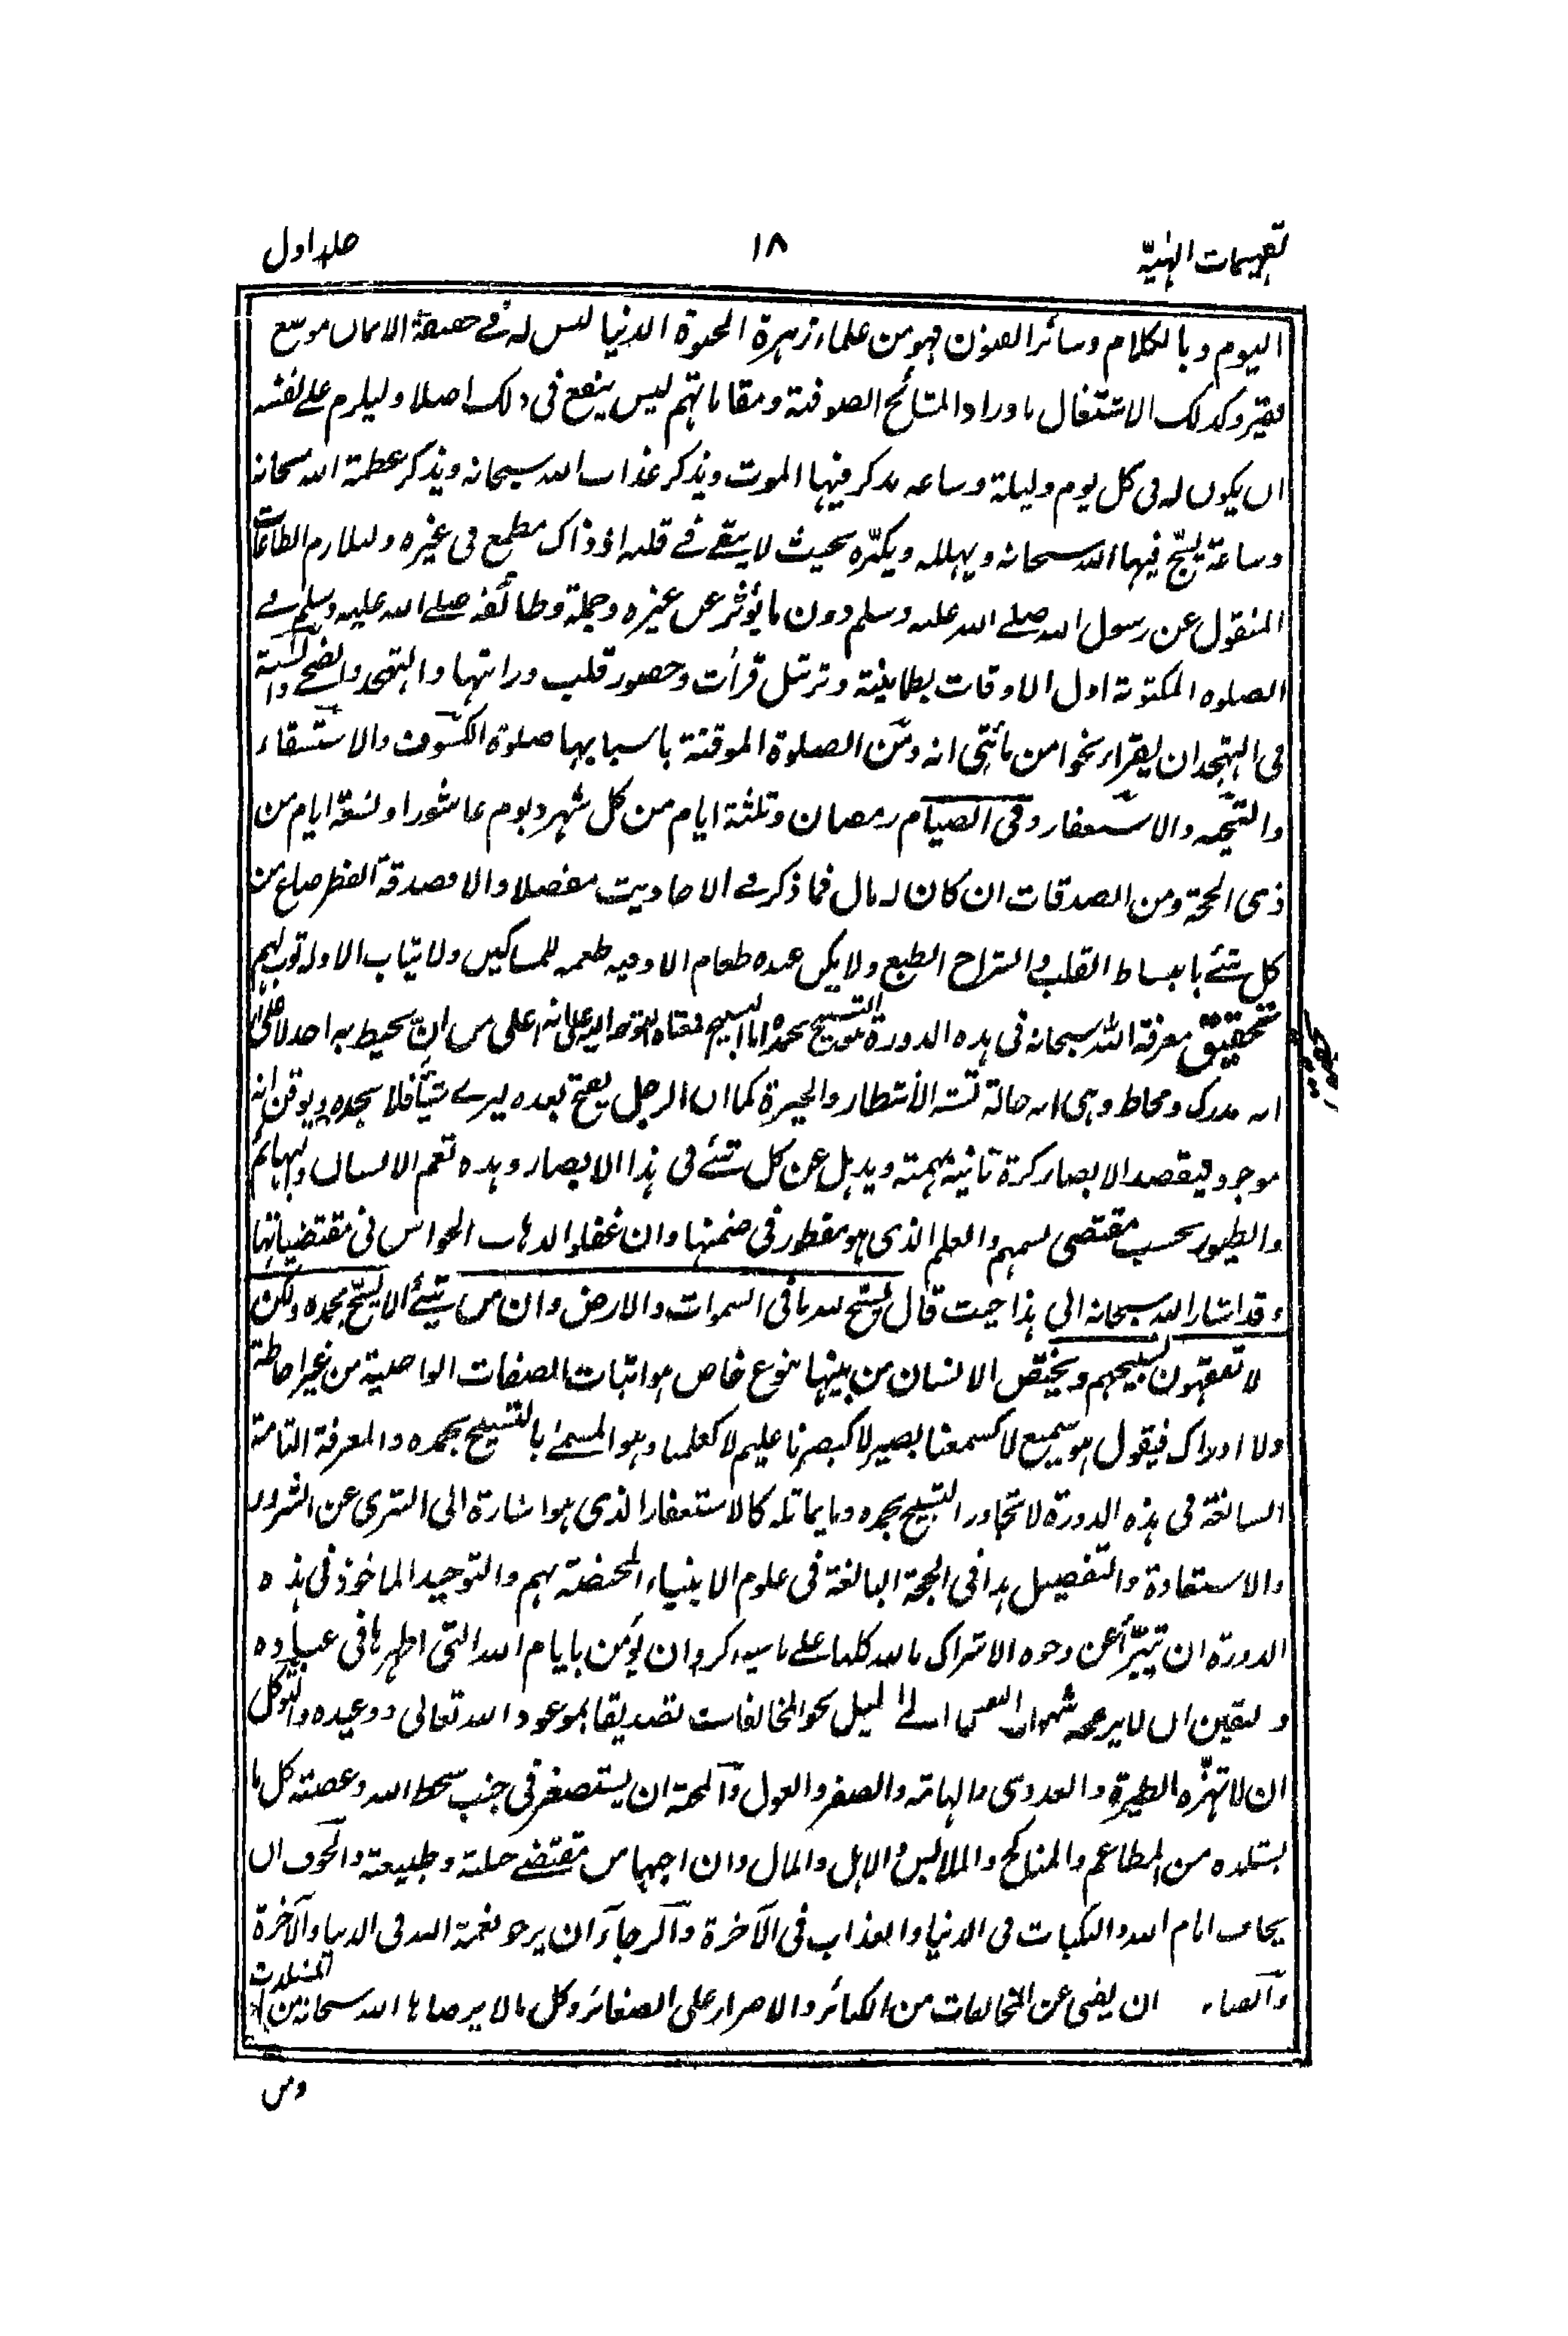 تفہیمات الٰہیّہ ١٨ جلد اول
الیوم و بالکلام وسائر الفنون فہو من علماء زہرة الحیوة الدنیا لیس لہ فے حقیقة الایمان موسع
فقیر وکذلک الاشتغال باوراد المشائخ الصوفیة ومقاماتہم لیس ینفع فی ذلک اصلا ولیلزم علے نفسہ
ان یکون لہ فی کل یوم ولیلة وساعہ یذکر فیہا الموت ویذکر عذاب اللہ سبحانہ ویذکر عظمة اللہ سبحانہ
وساعة یسبّح فیہا اللہ سبحانہ ویہللہ ویکبّرہ بحیث لا یبقے فے قلبہ اذ ذاک مطمع فی غیرہ ولیلازم الطاعات
المنقول عن رسول اللہ صلے اللہ علیہ وسلم دون ما یؤثر عن غیرہ وجملة وظائفہ صلے اللہ علیہ وسلم فے
الصلوہ المکتوبة اول الاوقات بطمانینة وترتیل قرأت وحضور قلب ورا تبہا والتہجد والضحے والسنة
فی التہجد ان یقراء نحوا من مأتی اٰیہ ومن الصلوة الموقتة باسبابہا صلوة الکسوف والاستسقاء
والتحیہ والاستغفار وفی الصیام رمضان وثلثة ایام من کل شہر ویوم عاشورا وتسعة ایام من
ذی الحجة ومن الصدقات ان کان لہ مال فما ذکر فے الاحادیث مفصلا والا فصدقة الفطر صاع من
کل شئے بانبساط القلب وانشراح الطبع ولا یکن عندہ طعام الا وفیہ طعمہ للمساکین ولا ثیاب الا ولہ ثوب لہم
تحقیق معرفة اللہ سبحانہ فی ہذہ الدورة التسبیح بحمدہ اما التسبیح فمعناہ التوجہ الیہ علی انہ اعلی من ان یحیط بہ احد لا علی
انہ مدرک ومحاط وہی انہ حالة تشبہ الانتظار والحیرة کما ان الرجل یفتح بعدہ لیرے شیئا فلا یجدہ ویوقن انہ
موجود فیقصد الابصار کرة ثانیة بہمتہ ویذہل عن کل شئے فی ہذا الابصار وہذہ تعم الانسان والبہائم
والطیور بحسب مقتضی نسمہم والعلم الذی ہو مفطور فی ضمنہا وان غفلوا لذہاب الحواس فی مقتضیاتہا
وقد اشار اللہ سبحانہ الی ہذا حیث قال یسبّح للہ ما فی السموات والارض وان من شیئ الا یسبّح بحمدہ ولکن
لا تفقہون تسبیحہم ویختص الانسان من بینہا بنوع خاص ہو اثبات الصفات الواصلیة من غیر احاطة
ولا ادراک فیقول ہو سمیع لا کسمعنا بصیر لا کبصرنا علیم لا کعلمنا وہو المسمے بالتسبیح بحمدہ والمعرفة التامة
السائغة فی ہذہ الدورة لا تتجاوز التسبیح بحمدہ وما یماثلہ کالاستغفار الذی ہو اشارة الی التبری عن الشرور
والاستعاذة والتفصیل ہذا فی الحجة البالغة فی علوم الانبیاء المختصة بہم والتوحید الماخوذ فی ہذہ
الدورة ان تتبرّأ عن وجوہ الاشراک باللہ کلہا علے ما سیذکر وان یؤمن بایام اللہ التی اظہرہا فی عبادہ
ولیقین ان لا یرحمہ شہوات النفس الے المیل نحو المخالفات تصدیقا بموعود اللہ تعالی ووعیدہ والتوکل
ان لا تہزّہ الطیرة والعدوی والہامة والصفر والغول والمحبة ان یستصغر فی جنب سخط اللہ وغضبہ کل ما
یستلذہ من المطاعم والمناکح والملابس والاہل والمال وان اجہا من مقتضے جبلتہ وطبیعتہ والخوف ان
یخاف ایام اللہ والنکبات فی الدنیا والعذاب فی الآخرة والرجاء ان یرجو نعمة اللہ فی الدنیا والآخرة
والصفاء ان یفنی عن المخالفات من الکبائر والاصرار علی الصغائر وکل ما لا یرضاہا اللہ سبحانہ من المستلذات
ومن